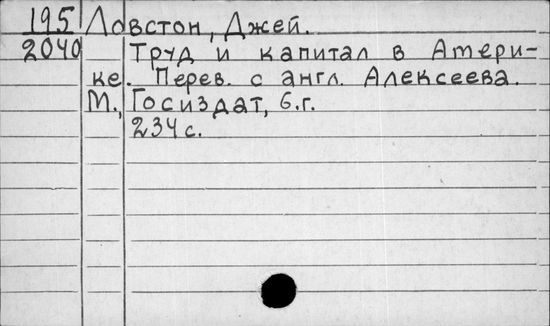 195 Ловстон, Джей.
2040 Труд и капитал в Амери-
ке. Перев. с англ. Алексеева.
М., Госиздат, б.г.
234 с.